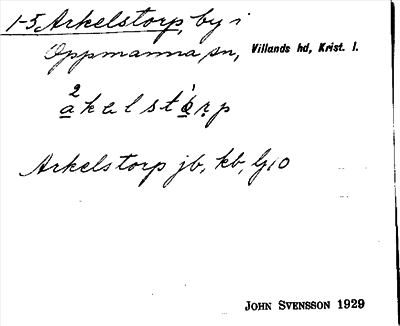 1-5 Arkelstorp, by i
Oppmanna sn, Villands hd, Krist. l.
2
akelstòrp
Arkelstorp jb, kb, Gg
JOHN SVENSSON 1929